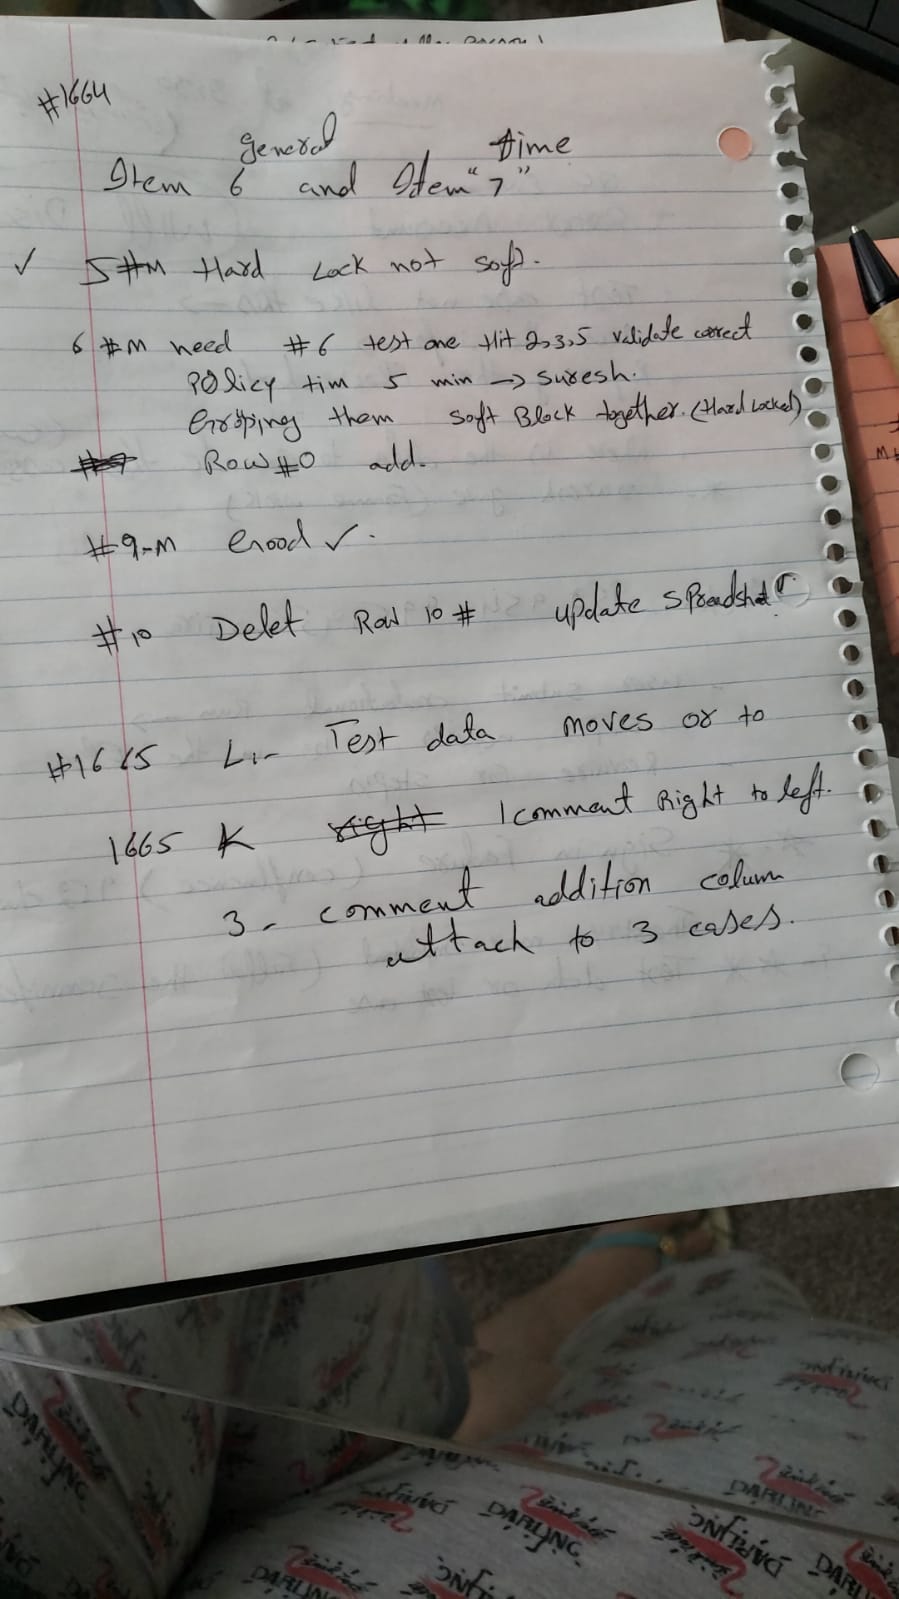 #1664
general time
Item 6 and Item "7"
✓ 5#M Hard Lock not soft.
6 #M need #6 test one Hit 2,3,5 validate correct
Policy tim 5 min → Suresh.
Groping them soft Block together. (Hard Locked)
Row #0 add.
#9-M Good ✓.
#10 Delet Row 10# update spreadshet
#1665 L.- Test data moves or to
1665 K right 1 comment Right to left.
3- comment addition colum
attach to 3 cases.
DARLING
DARLING
DARLING
DARLING
DARLING